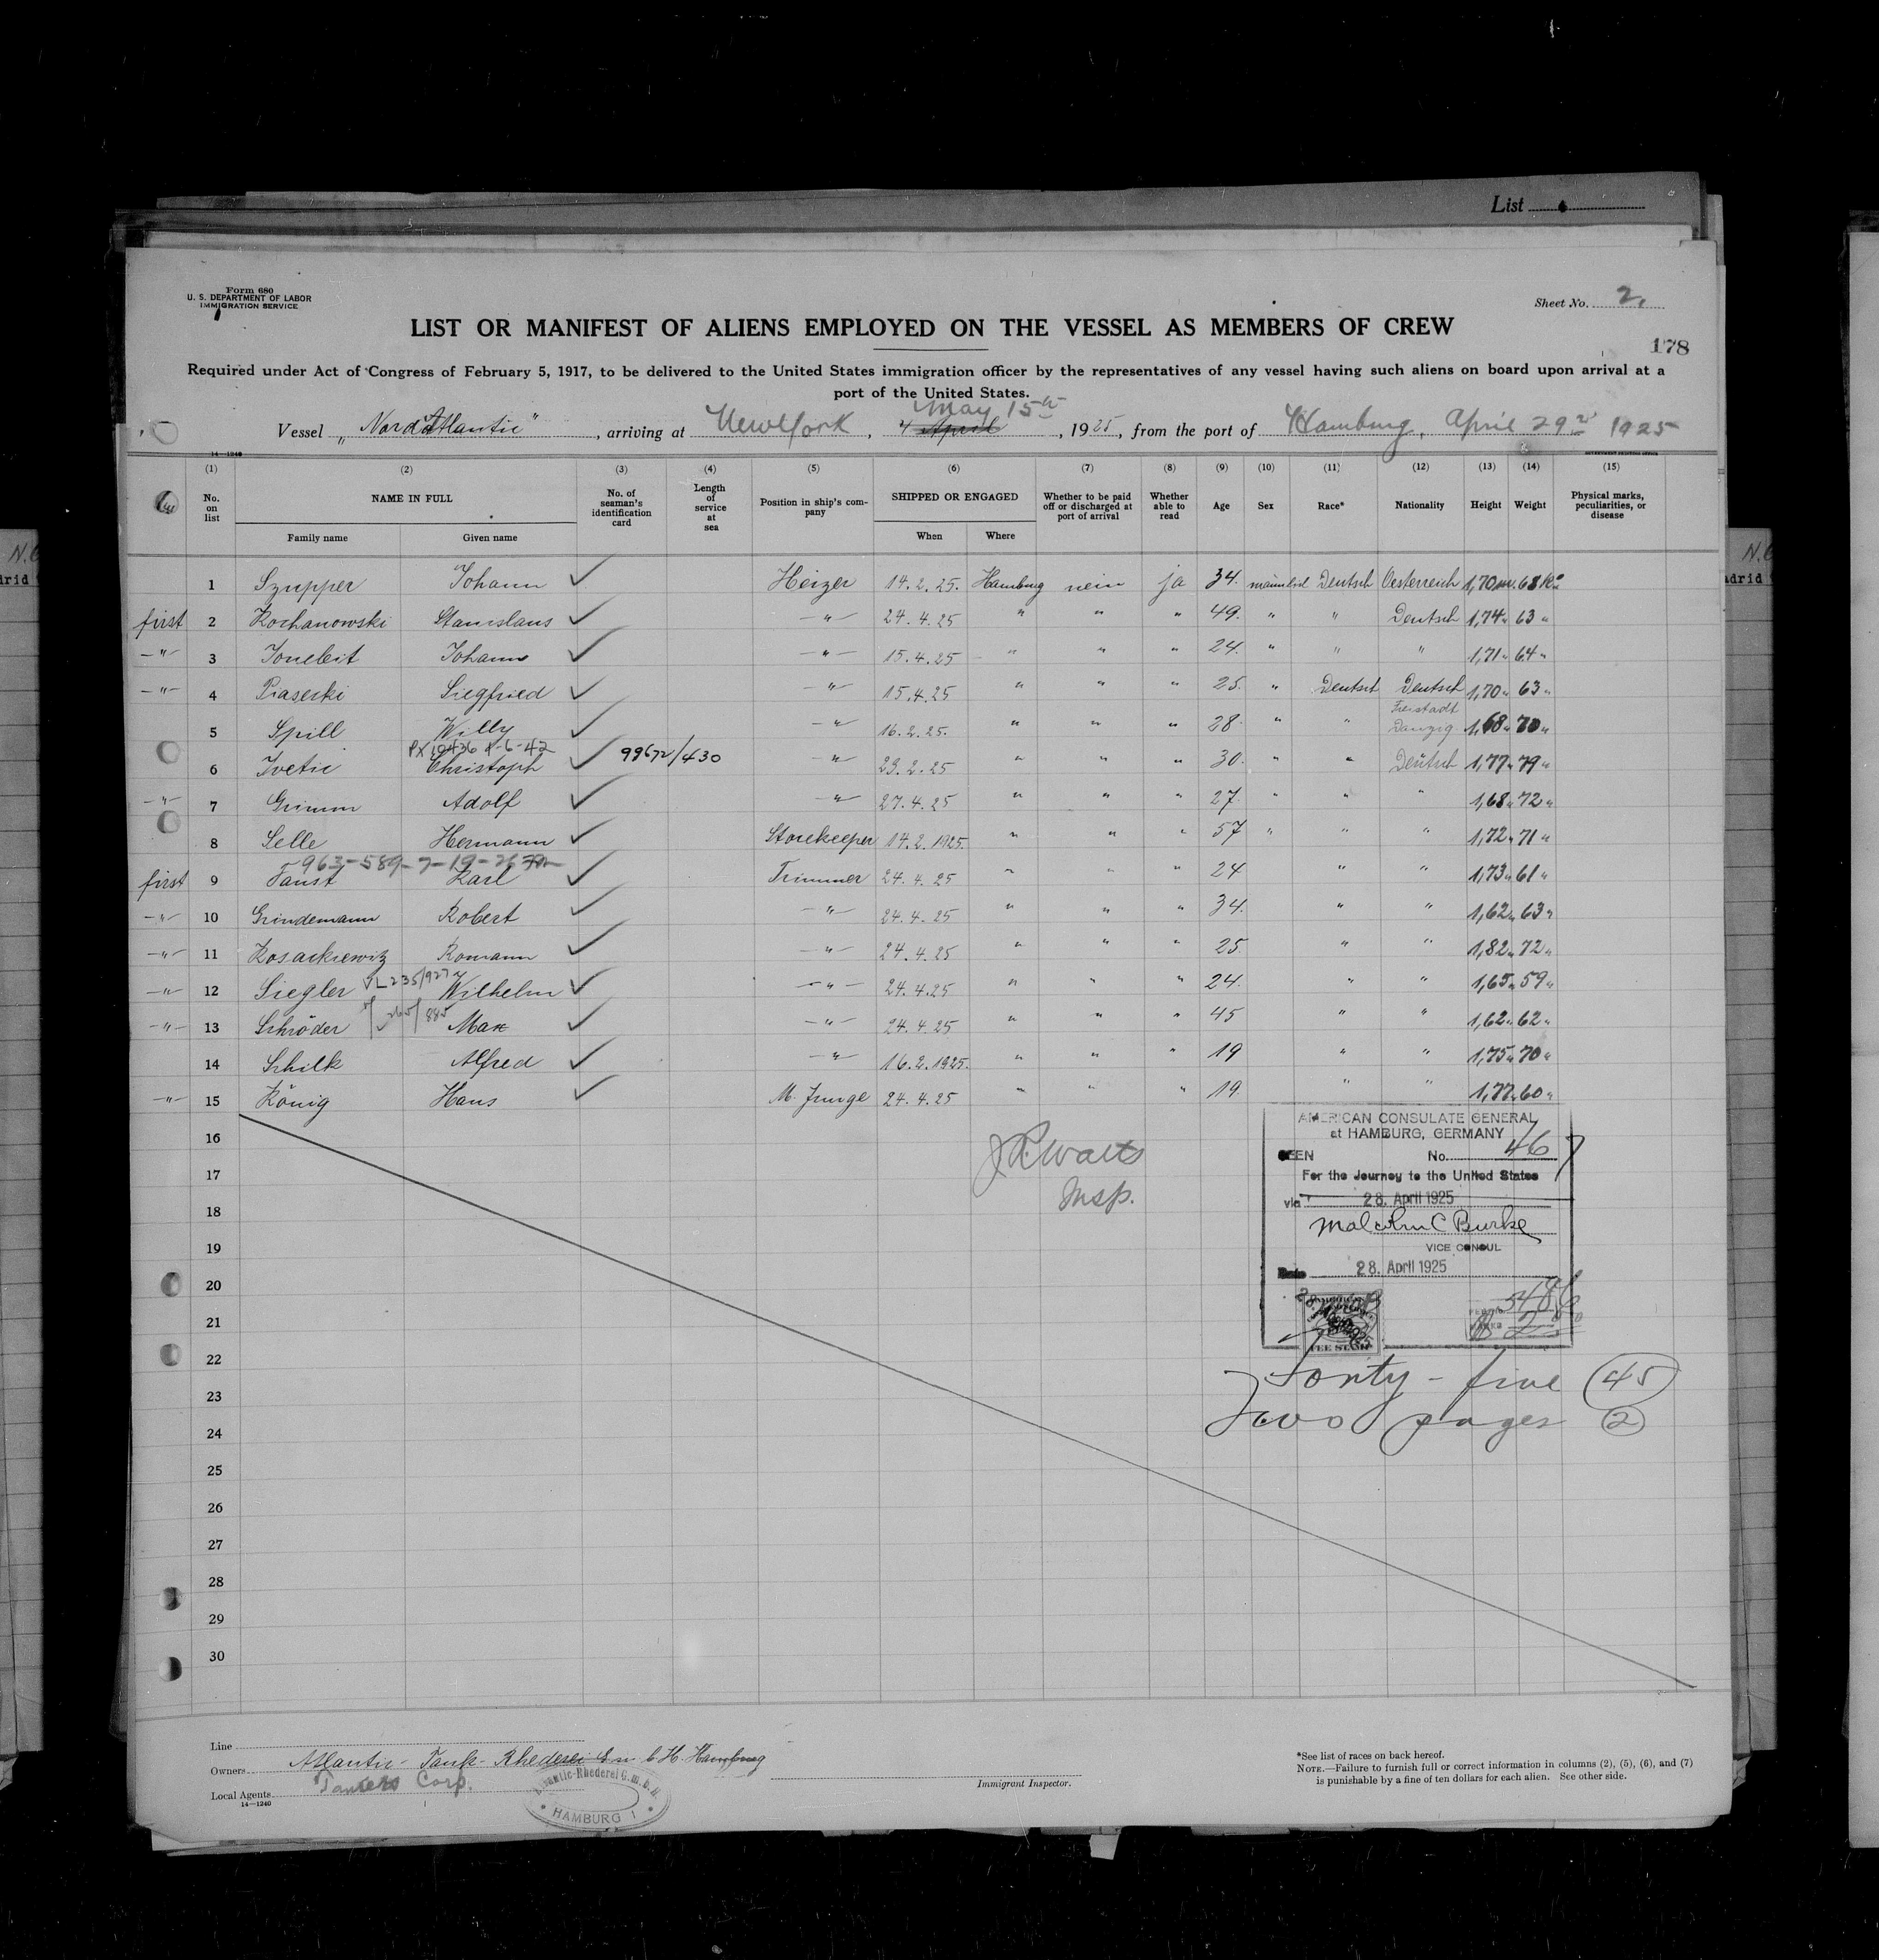 List
Form 680
U. S. DEPARTMENT OF LABOR
IMMIGRATION SERVICE
Sheet No. 2.
LIST OR MANIFEST OF ALIENS EMPLOYED ON THE VESSEL AS MEMBERS OF CREW
178
Required under Act of Congress of February 5, 1917, to be delivered to the United States immigration officer by the representatives of any vessel having such aliens on board upon arrival at a
port of the United States.
May 15th
Vessel „Nord Atlantic", arriving at New York, April, 1925, from the port of Hamburg, April 29 1925
14—1240
(1) (2) (3) (4) (5) (6) (7) (8) (9) (10) (11) (12) (13) (14) (15)
No. on list NAME IN FULL No. of seaman's identification card Length of service at sea Position in ship's company SHIPPED OR ENGAGED Whether to be paid off or discharged at port of arrival Whether able to read Age Sex Race* Nationality Height Weight Physical marks, peculiarities, or disease
Family name Given name When Where
1 Szupper Johann ✓ Heizer 14.2.25. Hamburg nein ja 34. männlich Deutsch Oesterreich 1,70m. 68 Ko
first 2 Kochanowski Stanislaus ✓ —"— 24.4.25 " " " 49. " " Deutsch 1,74" 63"
—"— 3 Joneleit Johann ✓ —"— 15.4.25 " " " 24. " " " 1,71" 64"
—"— 4 Piaseski Siegfried ✓ —"— 15.4.25 " " " 25. " Deutsch Deutsch 1,70" 63"
5 Spill Willy ✓ —"— 16.2.25. " " " 28. " " Freistadt Danzig 1,68" 70"
PX 10436 4-6-42
6 Ivetic Christoph ✓ 99672/430 —"— 23.2.25 " " " 30. " " Deutsch 1,77" 79"
—"— 7 Grimm Adolf ✓ —"— 27.4.25 " " " 27. " " " 1,68" 72"
8 Selle Hermann ✓ Storekeeper 14.2.1925. " " " 57 " " " 1,72" 71"
963-589-7-19-26
first 9 Faust Karl ✓ Trimmer 24.4.25 " " " 24 " " 1,73" 61"
—"— 10 Grindemann Robert ✓ —"— 24.4.25 " " " 34. " " 1,62" 63"
—"— 11 Kosackiewiz Romann ✓ —"— 24.4.25 " " " 25. " " 1,82" 72"
—"— 12 Siegler VL 235/927 Wilhelm ✓ —"— 24.4.25 " " " 24. " " 1,65" 59"
—"— 13 Schröder Max ✓ —"— 24.4.25 " " " 45 " " 1,62" 62"
14 Schilk Alfred ✓ —"— 16.2.1925. " " " 19 " " 1,75" 70"
—"— 15 König Hans ✓ M. Junge 24.4.25 " " " 19. " " 1,77" 60"
16
17
18
19
20
21
22
23
24
25
26
27
28
29
30
J.R. Watts
Insp.
AMERICAN CONSULATE GENERAL
at HAMBURG, GERMANY
SEEN No. 467
For the Journey to the United States
via 28. April 1925
Malcolm C Burke
VICE CONSUL
Date 28. April 1925
5486
FEE STAMP
Forty-five (45)
Two pages (2)
Line
Owners Atlantic-Tank-Rhederei G.m.b.H. Hamburg
Local Agents Tankers Corp.
14—1240
Atlantic-Rhederei G.m.b.H.
HAMBURG 1
Immigrant Inspector.
*See list of races on back hereof.
NOTE.—Failure to furnish full or correct information in columns (2), (5), (6), and (7)
is punishable by a fine of ten dollars for each alien. See other side.